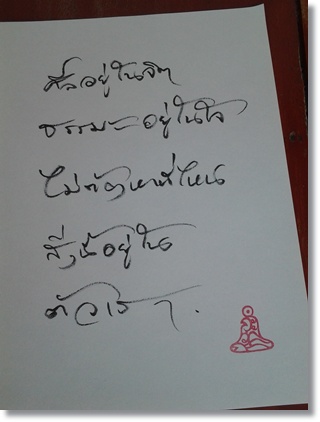 ศีลอยู่ในจิต
ธรรมะอยู่ในใจ
ไม่ต้องหาที่ไหน
สิ่งนี้อยู่ใน
ตัวเรา.